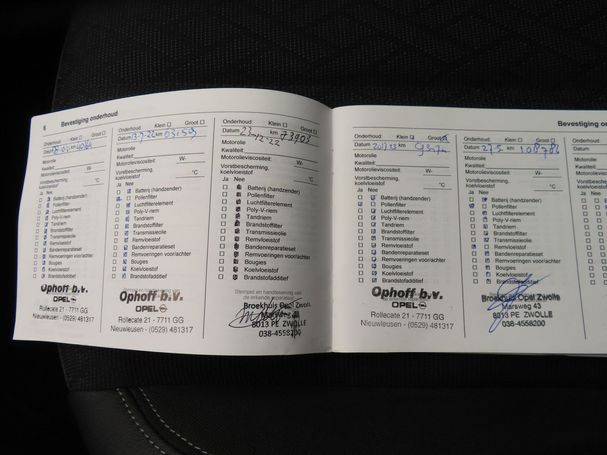 6 Bevestiging onderhoud
Onderhoud: Klein Groot
Datum km
Motorolie
Kwaliteit: W-
Motorolieviscositeit:
Vorstbescherming, koelvloeistof °C
Ja Nee
Batterij (handzender)
Pollenfilter
Luchtfilterelement
Poly-V-riem
Tandriem
Brandstoffilter
Transmissieolie
Remvloeistof
Bandenreparatieset
Remvoeringen voor/achter
Bougies
Koelvloeistof
Brandstofadditief
Ophoff b.v.
OPEL
Rollecate 21 - 7711 GG
Nieuwleusen - (0529) 481317
Onderhoud: Klein Groot
Datum 13-7-22 km
Motorolie
Kwaliteit: W-
Motorolieviscositeit:
Vorstbescherming, koelvloeistof °C
Ja Nee
Batterij (handzender)
Pollenfilter
Luchtfilterelement
Poly-V-riem
Tandriem
Brandstoffilter
Transmissieolie
Remvloeistof
Bandenreparatieset
Remvoeringen voor/achter
Bougies
Koelvloeistof
Brandstofadditief
Ophoff b.v.
OPEL
Rollecate 21 - 7711 GG
Nieuwleusen - (0529) 481317
Onderhoud: Klein Groot
Datum 23-12-22 km 73903
Motorolie
Kwaliteit: W-
Motorolieviscositeit:
Vorstbescherming, koelvloeistof °C
Ja Nee
Batterij (handzender)
Pollenfilter
Luchtfilterelement
Poly-V-riem
Tandriem
Brandstoffilter
Transmissieolie
Remvloeistof
Bandenreparatieset
Remvoeringen voor/achter
Bougies
Koelvloeistof
Brandstofadditief
Stempel en handtekening van
de erkende reparateur
Broekhuis Opel Zwolle
Marsweg 43
8013 PE ZWOLLE
038-4558200
Bevestiging on
Onderhoud: Klein Groot
Datum km
Motorolie
Kwaliteit: W-
Motorolieviscositeit:
Vorstbescherming, koelvloeistof °C
Ja Nee
Batterij (handzender)
Pollenfilter
Luchtfilterelement
Poly-V-riem
Tandriem
Brandstoffilter
Transmissieolie
Remvloeistof
Bandenreparatieset
Remvoeringen voor/achter
Bougies
Koelvloeistof
Brandstofadditief
Ophoff b.v.
OPEL
Rollecate 21 - 7711 GG
Nieuwleusen - (0529) 481317
Onderhoud: Klein Groot
Datum 27-5 km 108786
Motorolie
Kwaliteit: W-
Motorolieviscositeit:
Vorstbescherming, koelvloeistof °C
Ja Nee
Batterij (handzender)
Pollenfilter
Luchtfilterelement
Poly-V-riem
Tandriem
Brandstoffilter
Transmissieolie
Remvloeistof
Bandenreparatieset
Remvoeringen voor/achter
Bougies
Koelvloeistof
Brandstofadditief
Broekhuis Opel Zwolle
Marsweg 43
8013 PE ZWOLLE
038-4558200
Onderhoud:
Datum
Motorolie
Kwaliteit:
Ja Nee